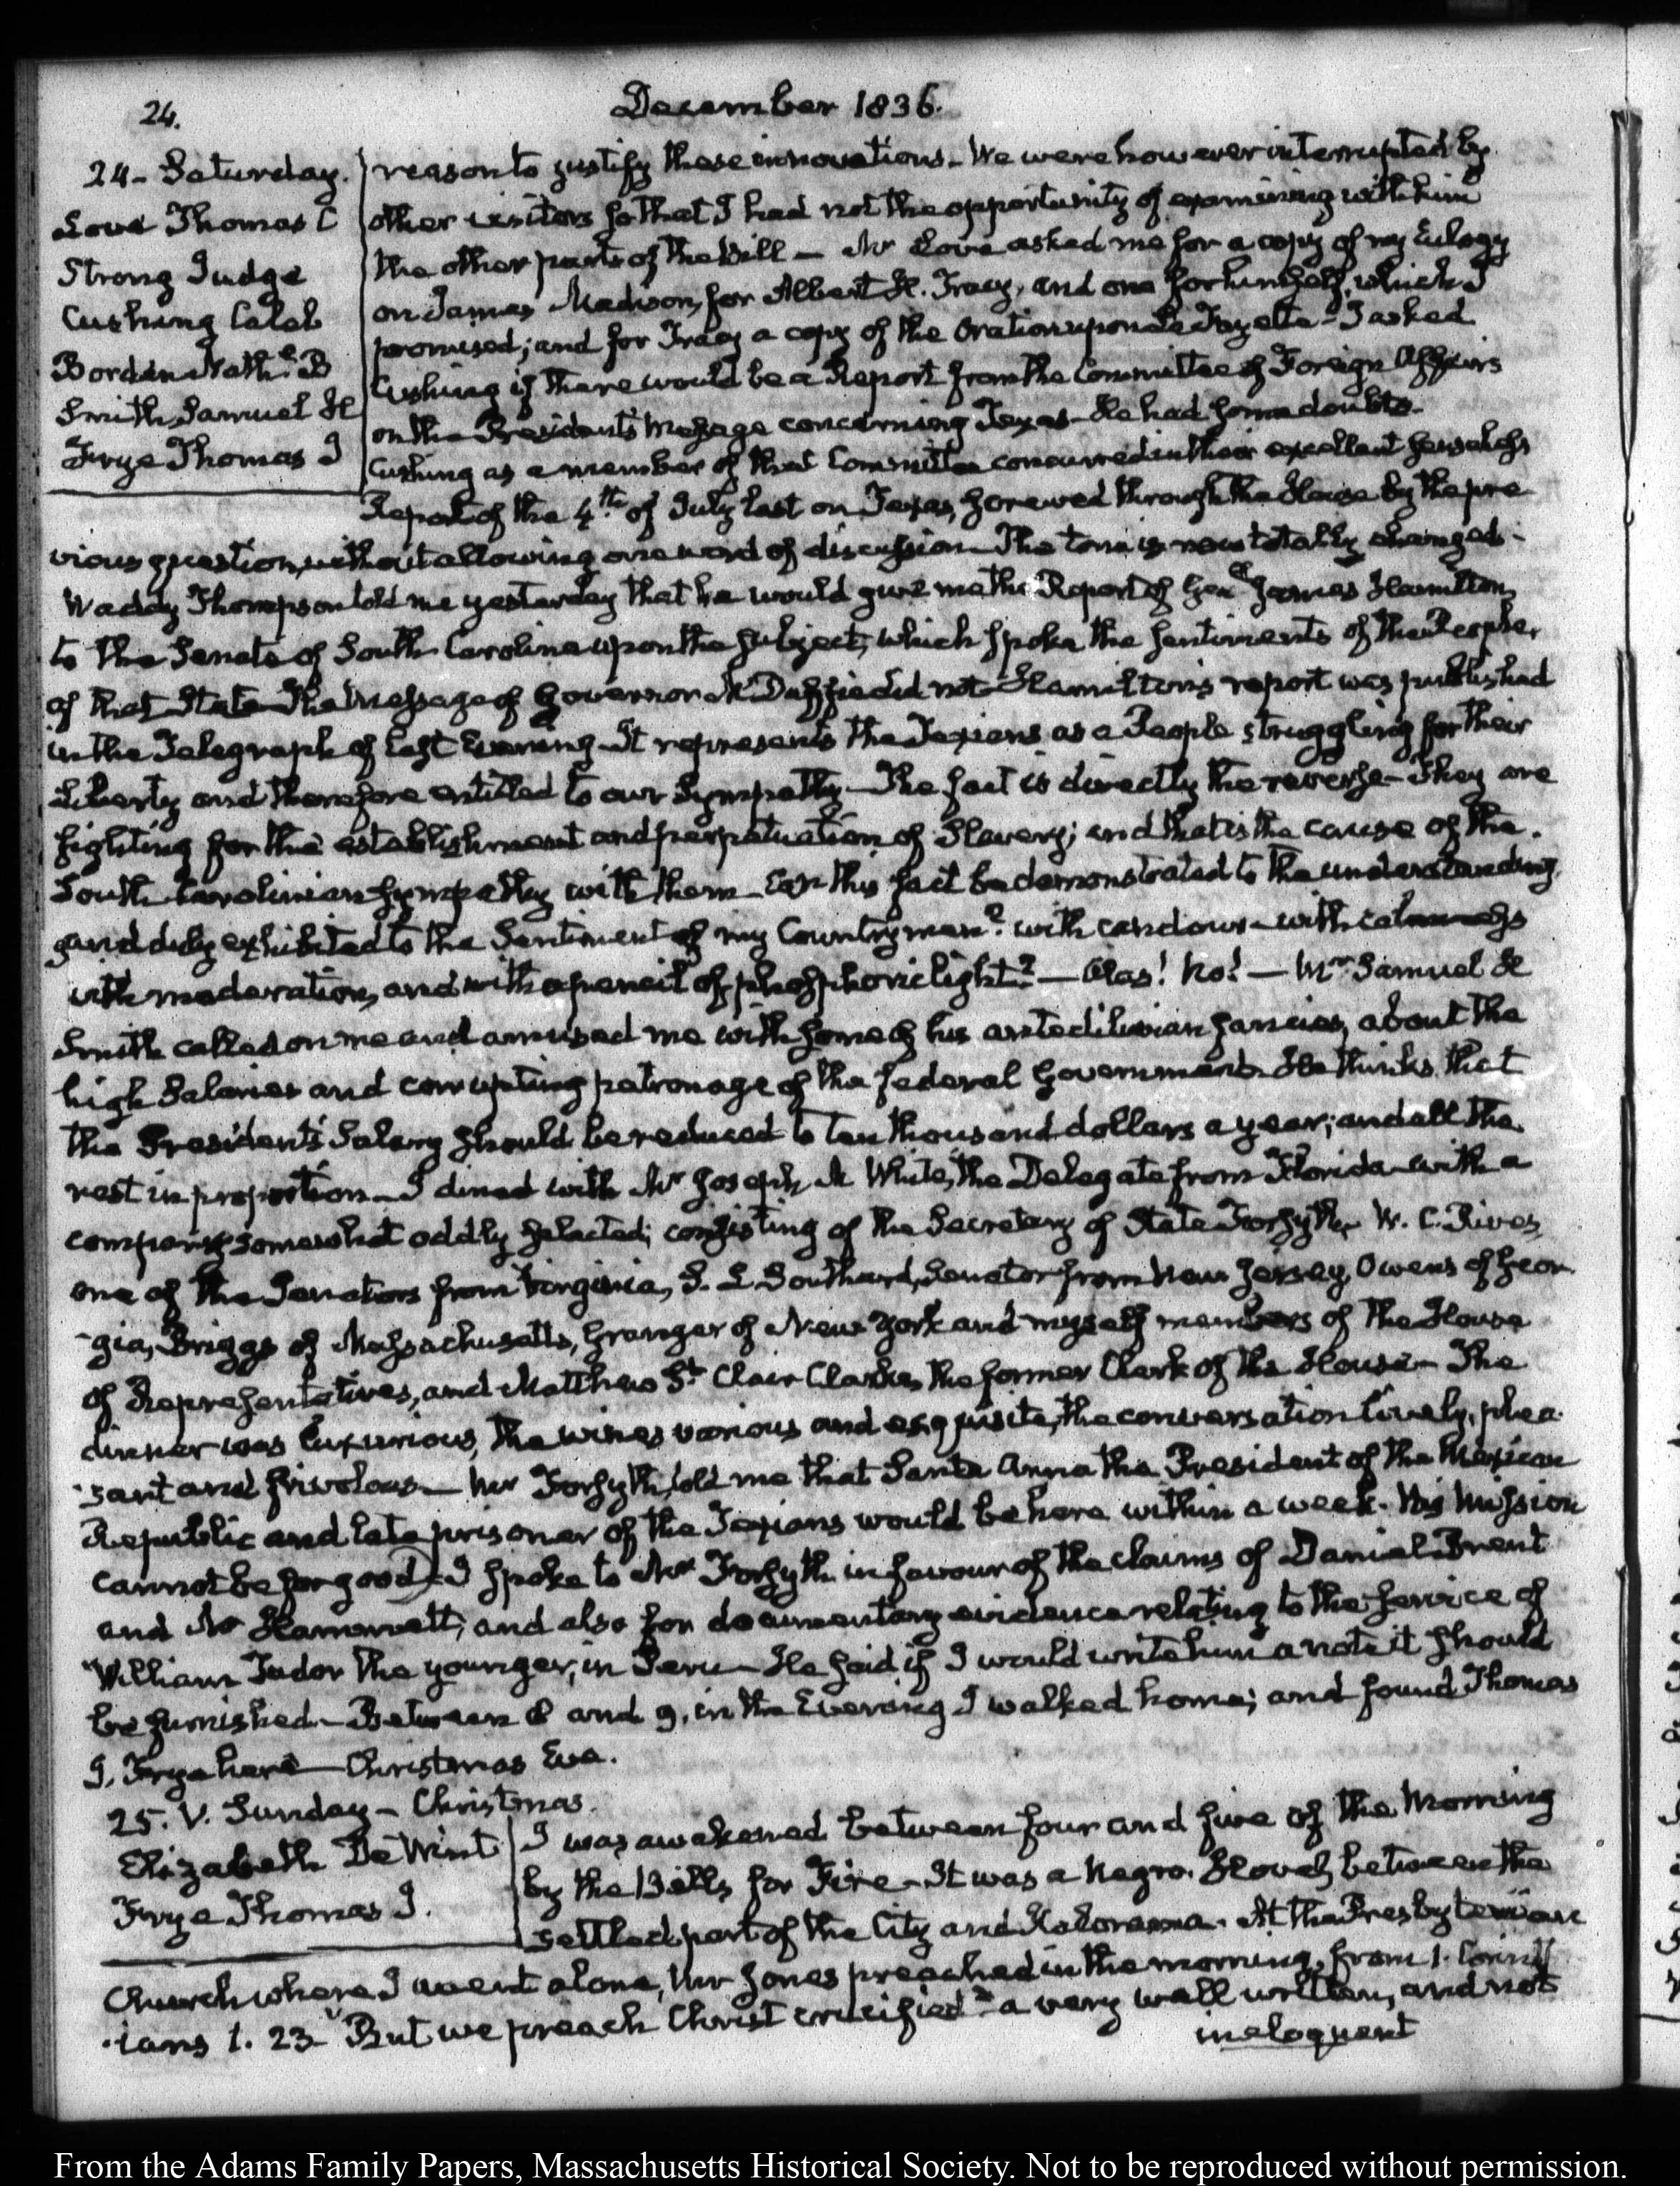 24.
December 1836.
24- Saturday.
Love Thomas C
Strong Judge
Cushing Caleb
Borden Nath.l B
Smith Samuel H
Frye Thomas J
reason to justify these innovations_ We were however interrupted by
other visitors so that I had not the opportunity of examining with him
the other parts of the Bill — Mr Love asked me for a copy of my Eulogy
on James Madison, for Albert H. Tracy, and one for himself, which I
promised; and for Tracy a copy of the Oration upon La Fayette- I asked
Cushing if there would be a Report from the Committee of Foreign Affairs
on the President's Message concerning Texas- He had some doubts-
Cushing as a member of that Committee concurred in their
Report of the 4th. of July last on Texas, through the House by the pre
vious question, without allowing one word of discussion_ The tone is now totally changed-
Waddy Thompson told me yesterday that he would give me the Report of Genl James Hamilton,
to the Senate of South Carolina upon the subject, which spoke the sentiments of the People,
of that State_ The Message of Governor McDuffie did not- Hamilton's report was published
in the Telegraph of last Evening- It represents the Texians as a People struggling for their
Liberty and therefore entitled to our Sympathy_ The fact is directly the reverse- They are
fighting for the establishment and perpetuation of Slavery; and that is the cause of the
South Carolinian sympathy with them_ Can this fact be demonstrated to the understanding,
and duly exhibited to the Sentiment of my Countrymen? with candour- with calmness
with moderation, and with a pencil of phosphoric light? — Alas! No! — Mr Samuel H
Smith called on me and amused me with some of his antediluvian fancies, about the
high Salaries and corrupting patronage of the federal Government- He thinks that
the President's Salary should be reduced to ten thousand dollars a year; and all the
rest in proportion_ I dined with Mr Joseph M White, the Delegate from Florida_ with a
company somewhat oddly selected; consisting of the Secretary of State Forsyth, W. C. Rives,
one of the Senators from Virginia, S. L. Southard, Senator from New Jersey, Owens of Geor
-gia, Briggs of Massachusetts, Granger of New York and myself members of the House
of Representatives, and Matthew St Clair Clarke, the former Clerk of the House- The
dinner was luxurious, the wines various and exquisite, the conversation lively, plea
-sant and frivolous_ Mr Forsyth, told me that Santa Anna the President of the Mexican
Republic and late prisoner of the Texians would be here within a week. His Mission
cannot be for good_ I spoke to Mr Forsyth in favour of the claims of Daniel Brent
and Mr Hammett, and also for documentary evidence relating to the service of
William Tudor the younger, in Peru- He said if I would write him a note it should
be furnished- Between 8 and 9, in the Evening I walked home; and found Thomas
J. Frye here — Christmas Eve.
25. V. Sunday- Christmas.
Elizabeth De Wint
Frye Thomas J.
I was awakened between four and five of the Morning
by the Bells for Fire_ It was a Negro Hovel, between the
settled part of the City and Kalorama. At the Presbyterian
Church where I went alone, Mr Jones preached in the morning, from 1. Corinth
-ians 1. 23. "But we preach Christ crucified" a very well written, and not
ineloquent
From the Adams Family Papers, Massachusetts Historical Society. Not to be reproduced without permission.